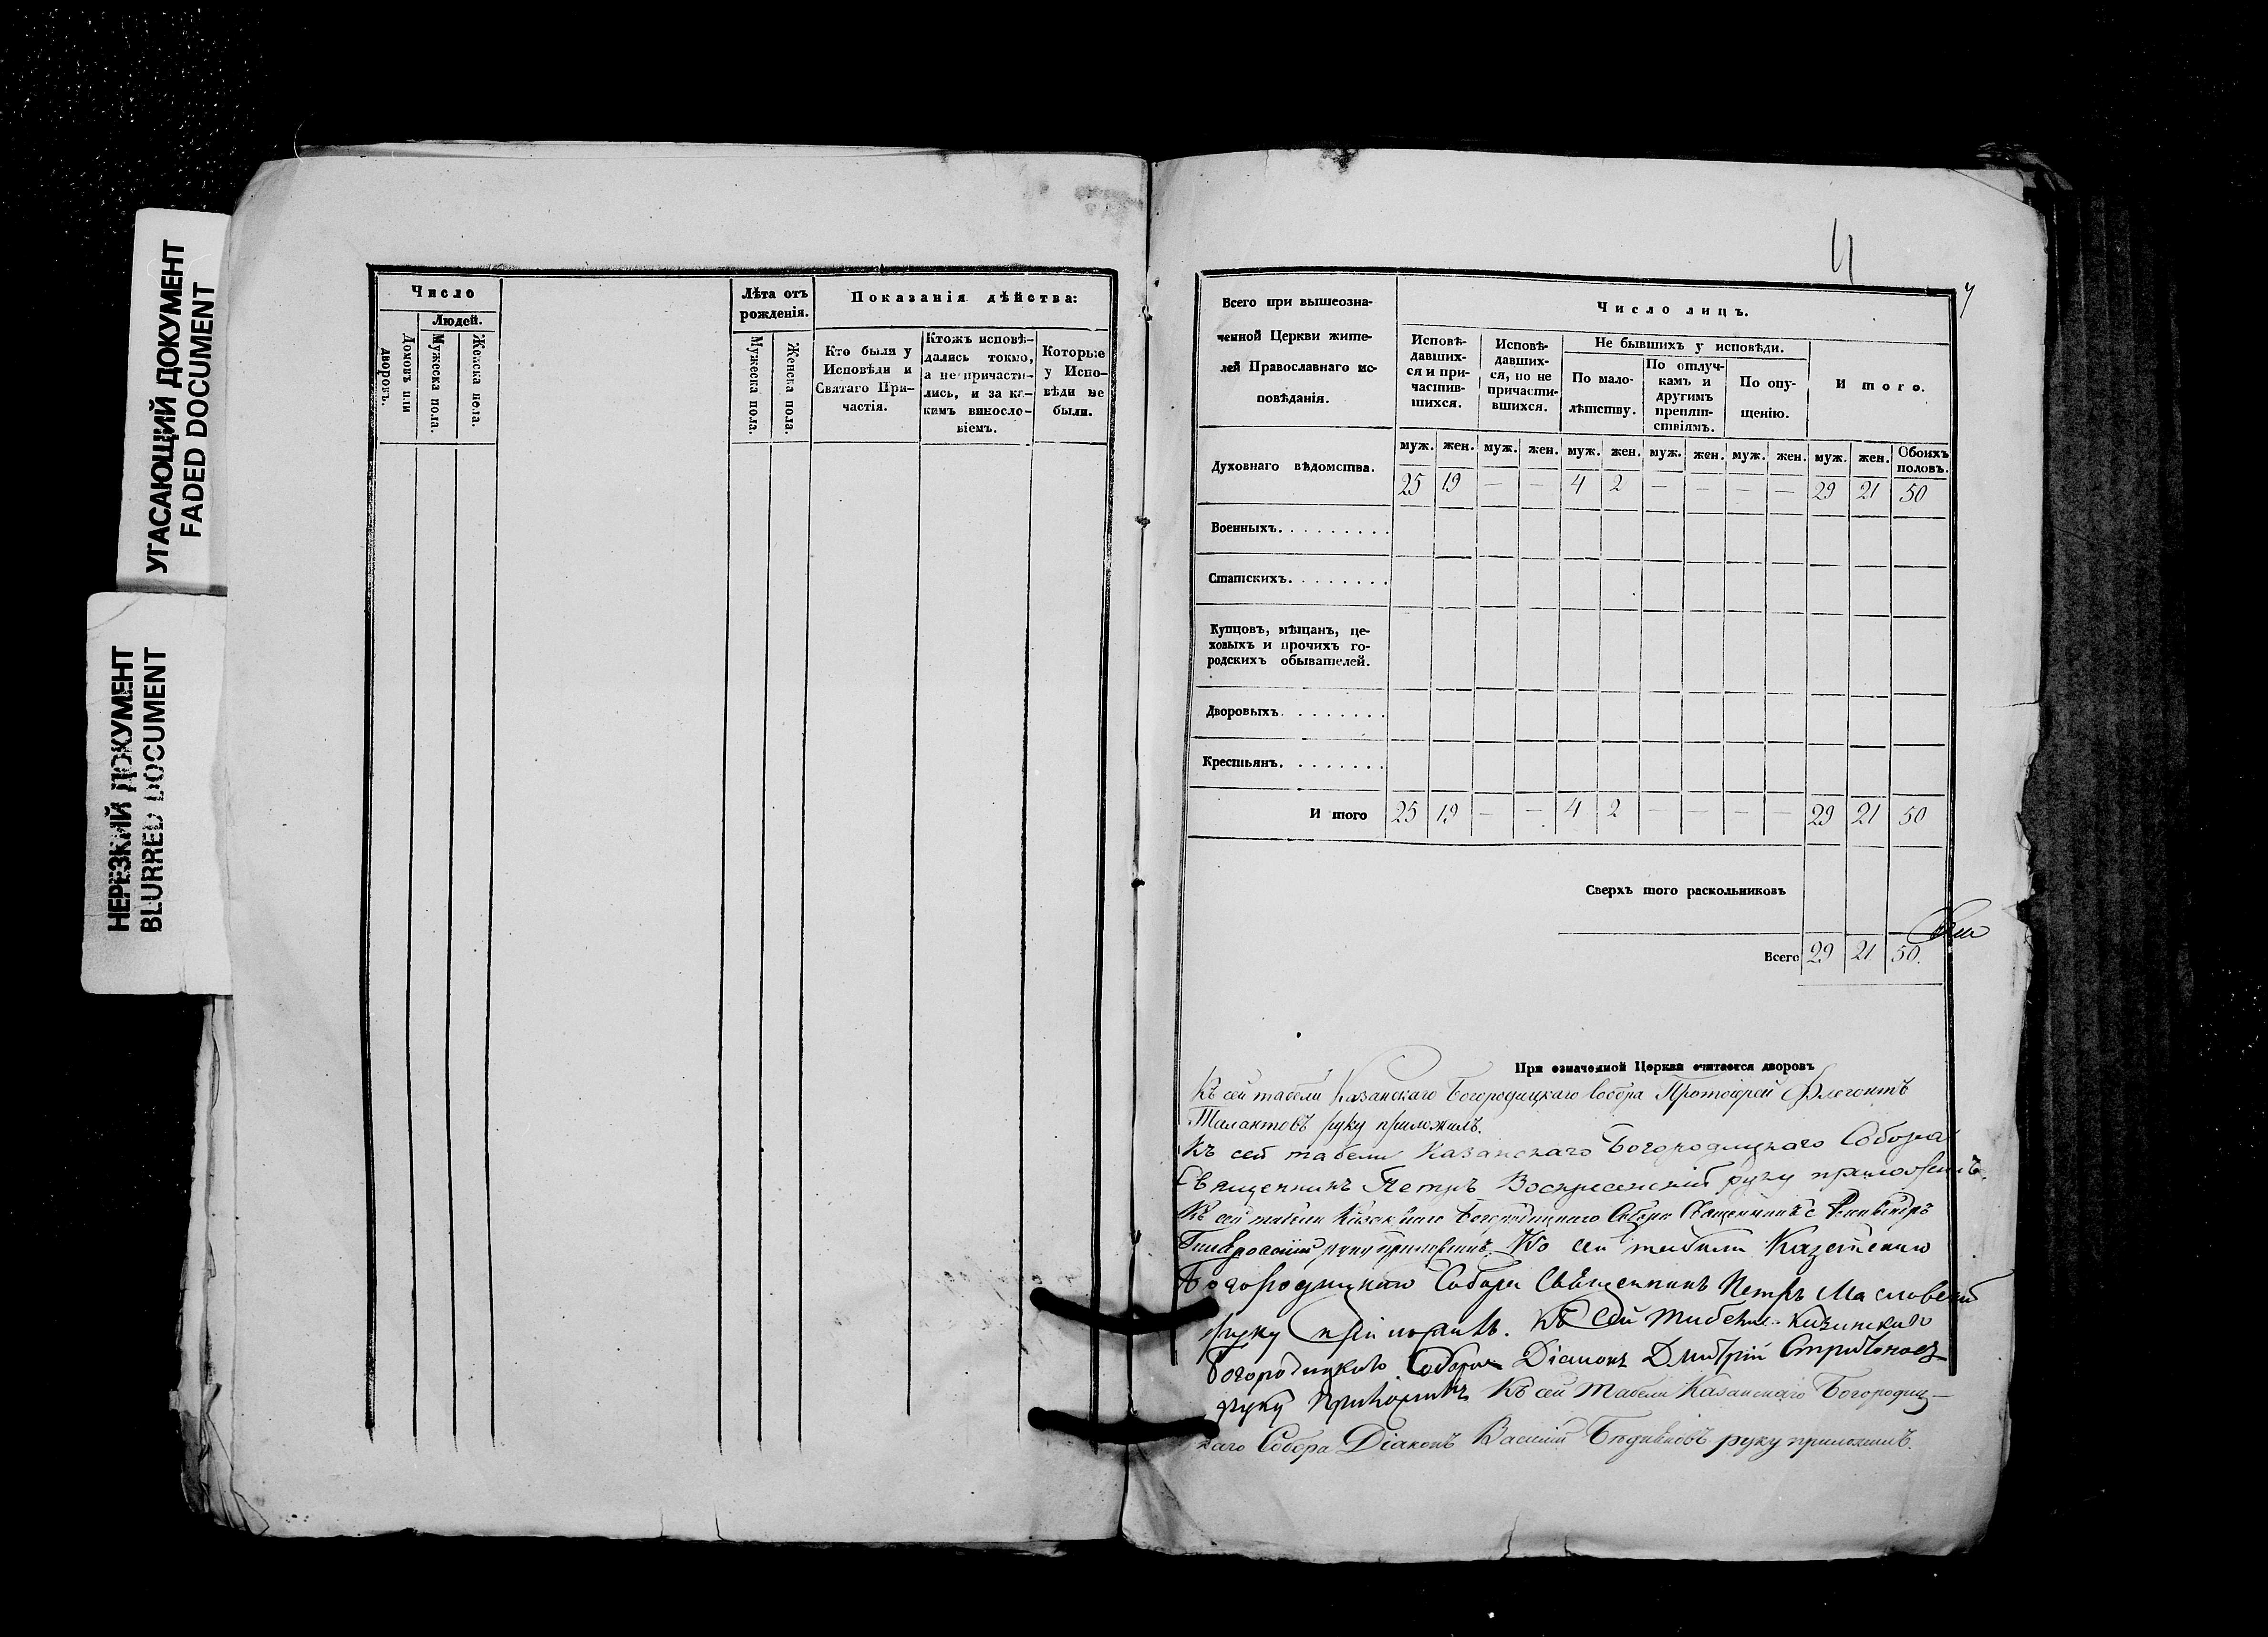 УГАСАЮЩИЙ ДОКУМЕНТ
FADED DOCUMENT
НЕРЕЗКИЙ ДОКУМЕНТ
BLURRED DOCUMENT
Число
Людей.
Домовъ или дворовъ.
Мужеска пола.
Женска пола.
Лѣта отъ
рожденія.
Мужеска пола.
Женска пола.
Показанія дѣйства:
Кто были у
Исповѣди и
Святаго При-
частія.
Ктожъ исповѣ-
дались токмо,
а не причасти-
лись, и за ка-
кимъ винословіемъ.
Которые
у Испо-
вѣди не
были.
4
Всего при вышеозна-
ченной Церкви жите-
лей Православнаго ис-
повѣданія.
Число лицъ.
Исповѣ-
давших-
ся и при-
частив-
шихся.
Исповѣ-
давших-
ся, но не
причасти-
вшихся.
Не бывшихъ у исповѣди.
По мало-
лѣтству.
По отлуч-
камъ и
другимъ
препят-
ствіямъ.
По опу-
щенію.
И того.
муж. жен. муж. жен. муж. жен. муж. жен. муж. жен. муж. жен. Обоихъ половъ.
Духовнаго вѣдомства. 25 19 — — 4 2 — — — — 29 21 50
Военныхъ.
Статскихъ.
Купцовъ, мѣщанъ, це-
ховыхъ и прочихъ го-
родскихъ обывателей.
Дворовыхъ.
Крестьянъ.
И того 25 19 — — 4 2 — — — — 29 21 50
Сверхъ того раскольниковъ
Всего 29 21 50.
При означенной Церкви считается дворовъ
Къ сей табели Казанскаго Богородицкаго Собора Протоіерей Флегонтъ
Талантовъ руку приложилъ.
Къ сей табели Казанскаго Богородицкаго Собора
Священникъ Петръ Воскресенскій руку приложилъ.
Къ сей табели Казанскаго Богородицкаго Собора Священникъ
руку приложилъ. Ко сей табели Казанскаго
Богородицкаго Собора Священникъ Петръ Масловскій
руку приложилъ. Къ сей табели Казанскаго
Богородицкаго Собора Діаконъ Дмитрій
руку приложилъ Къ сей табели Казанскаго Богородиц-
каго Собора Діаконъ Василій руку приложилъ.